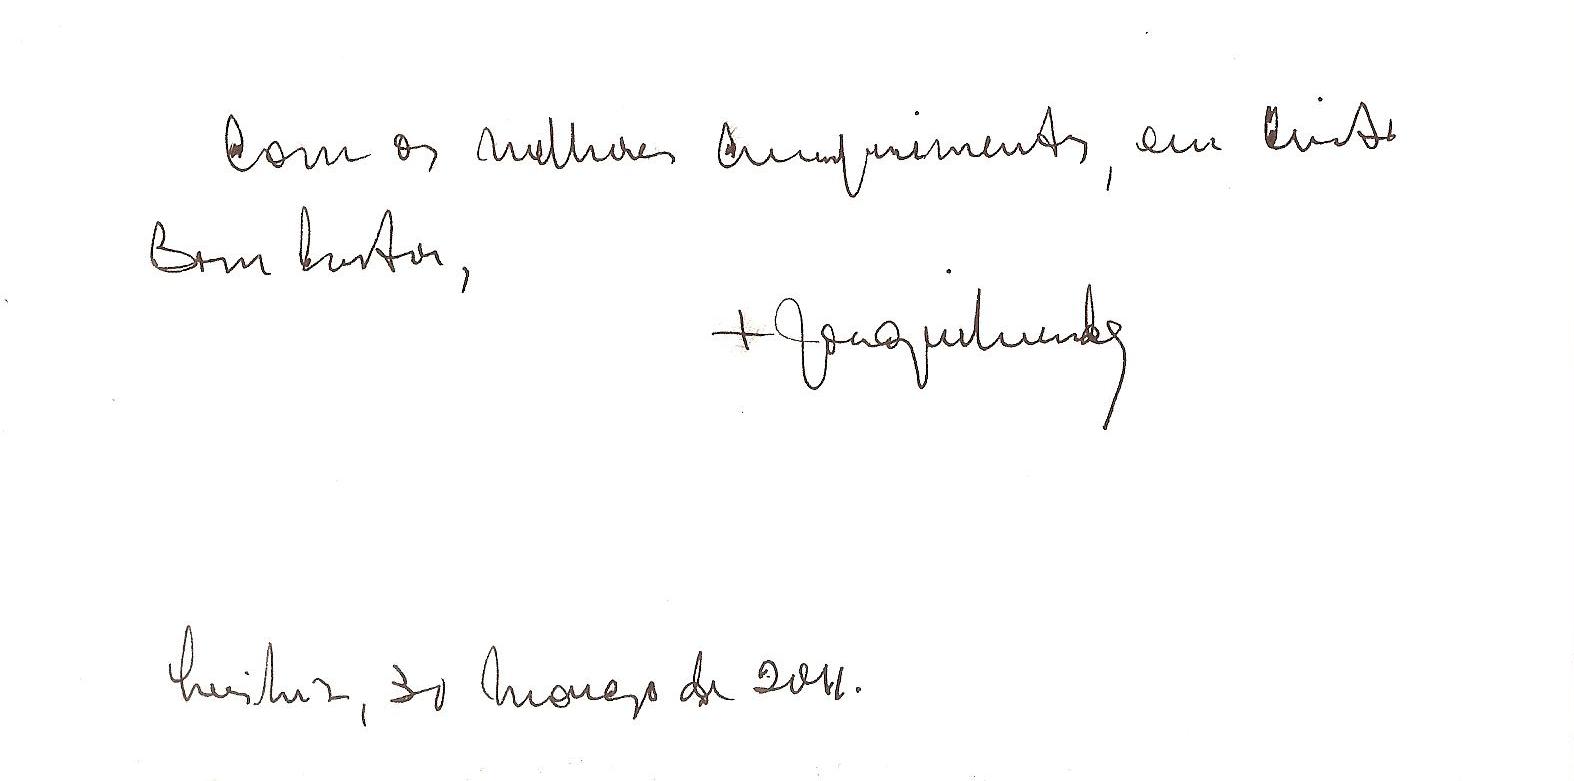 Com os melhores cumprimentos, em Cristo
Bom Pastor,
+ Joaquim Mendes
30 Março de 2011.